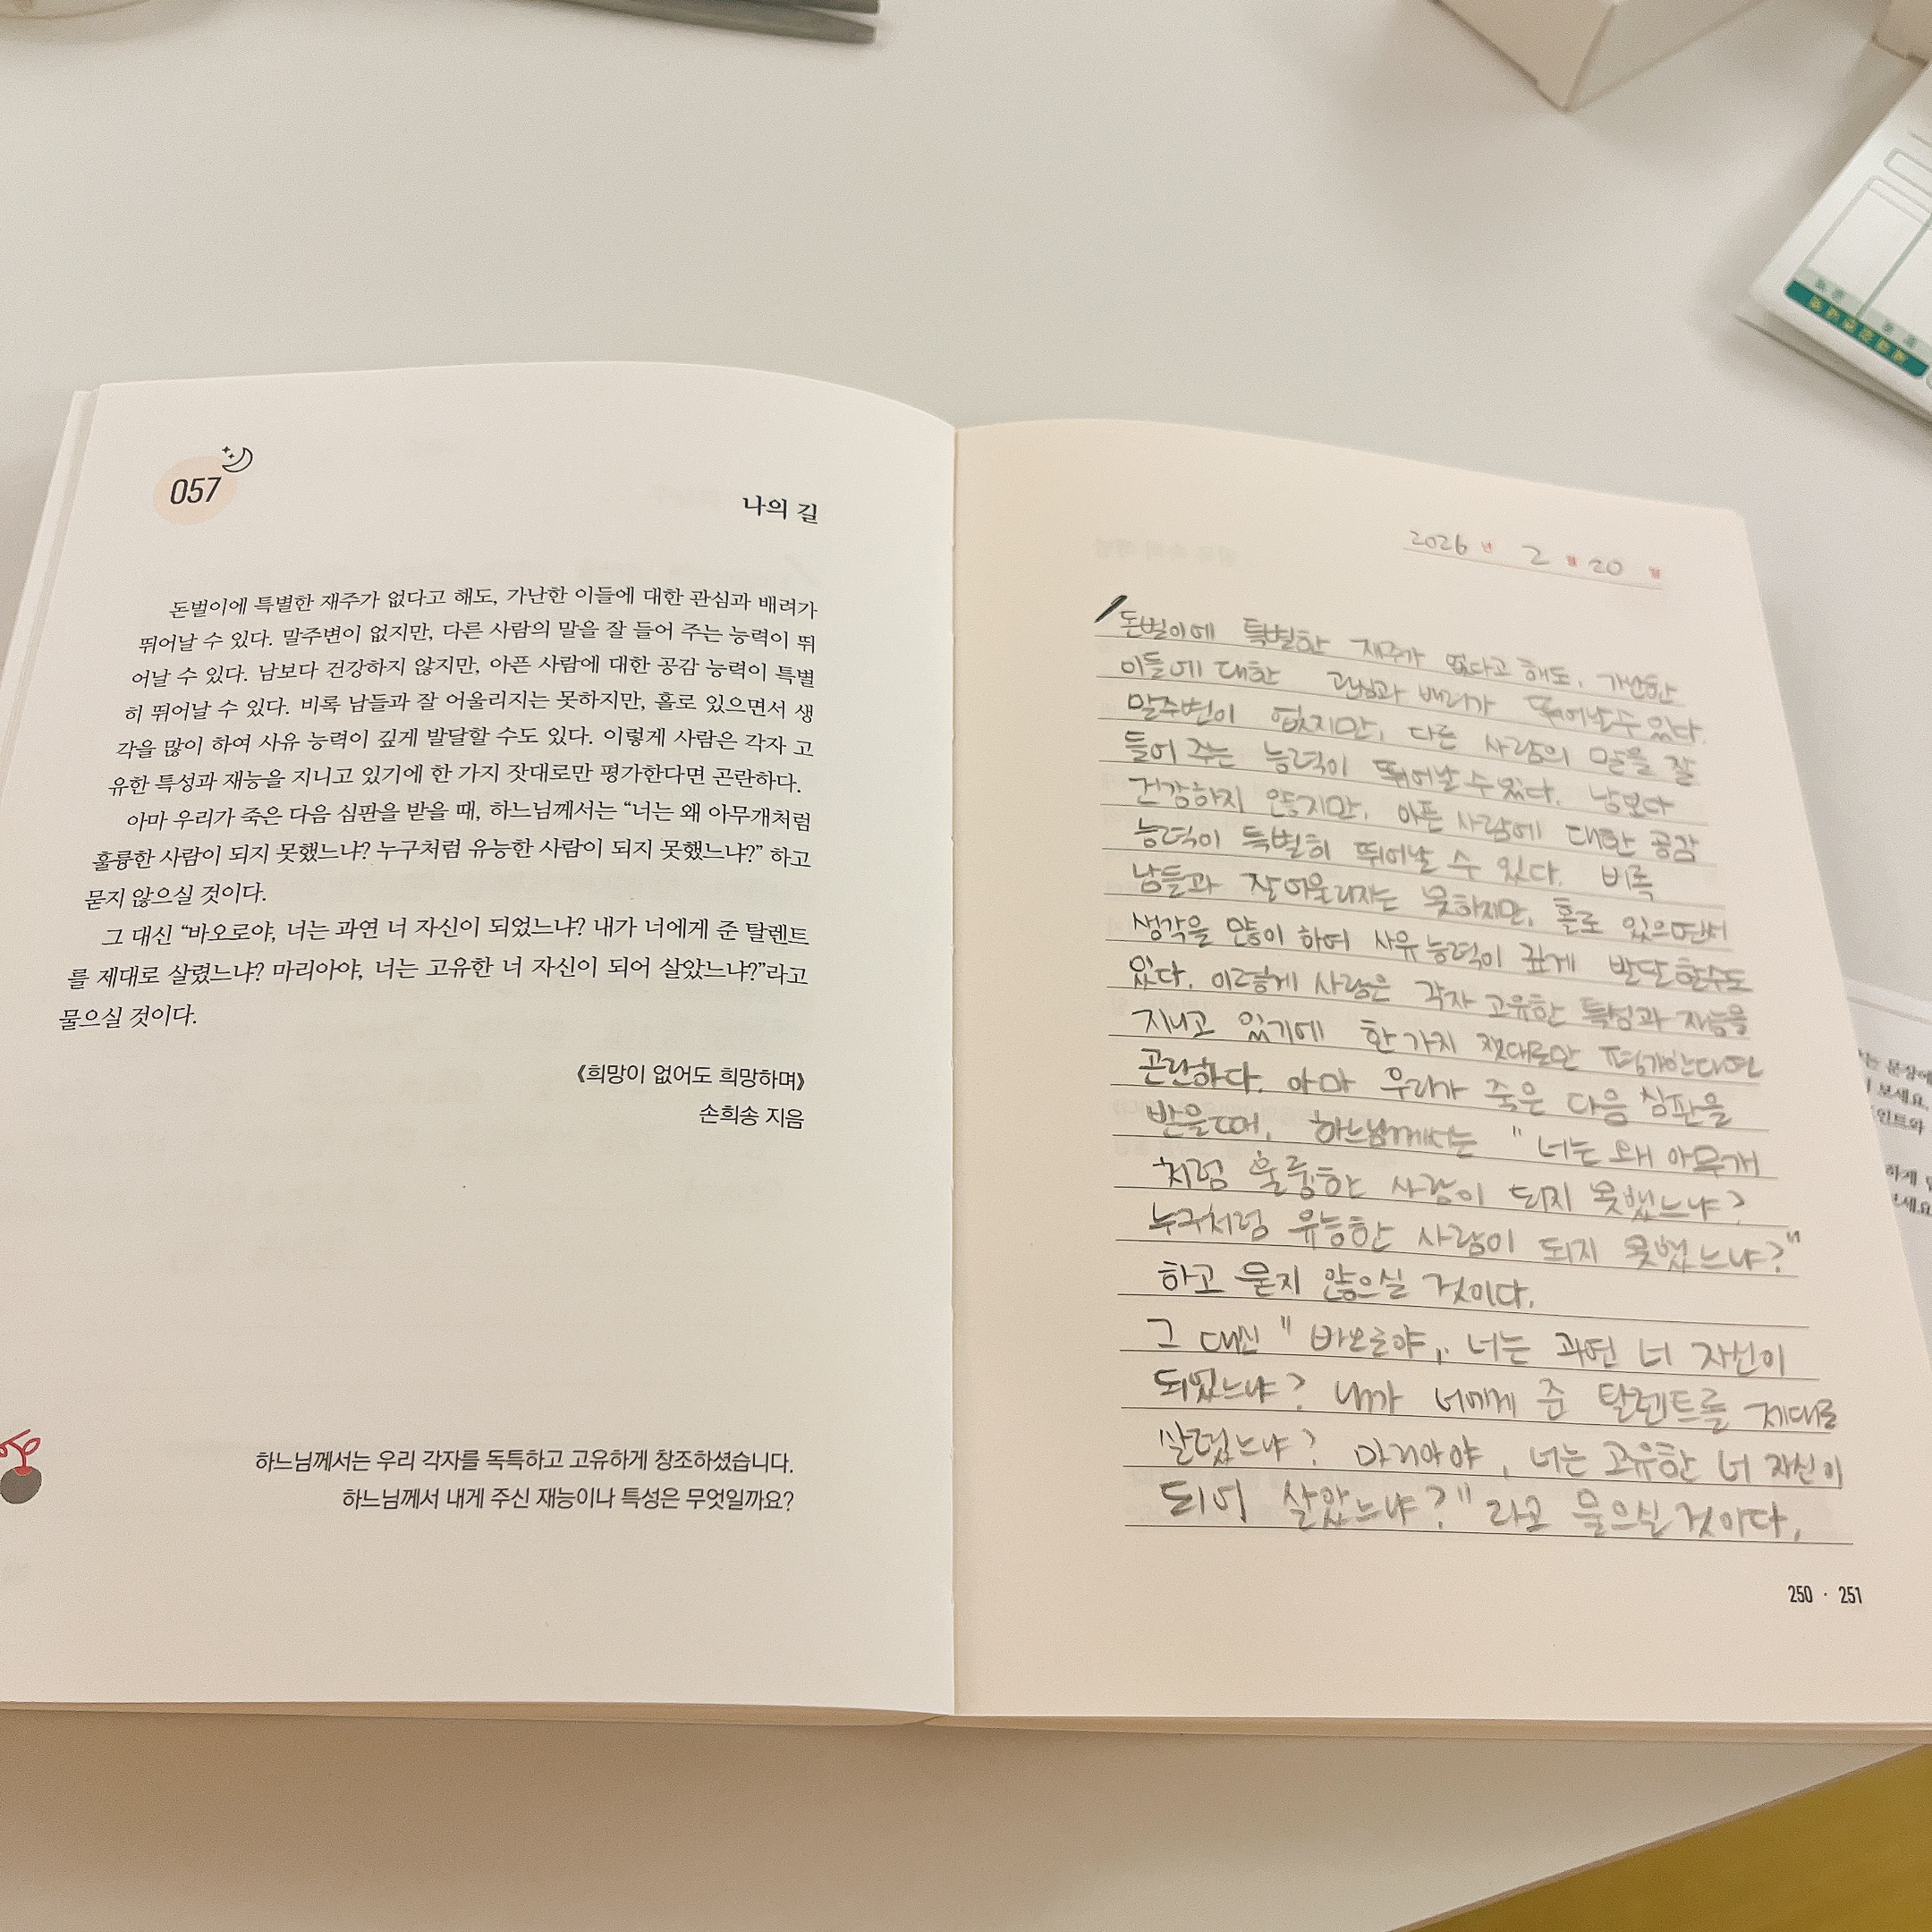 057
나의 길
돈벌이에 특별한 재주가 없다고 해도, 가난한 이들에 대한 관심과 배려가
뛰어날 수 있다. 말주변이 없지만, 다른 사람의 말을 잘 들어 주는 능력이 뛰
어날 수 있다. 남보다 건강하지 않지만, 아픈 사람에 대한 공감 능력이 특별
히 뛰어날 수 있다. 비록 남들과 잘 어울리지는 못하지만, 홀로 있으면서 생
각을 많이 하여 사유 능력이 깊게 발달할 수도 있다. 이렇게 사람은 각자 고
유한 특성과 재능을 지니고 있기에 한 가지 잣대로만 평가한다면 곤란하다.
아마 우리가 죽은 다음 심판을 받을 때, 하느님께서는 “너는 왜 아무개처럼
훌륭한 사람이 되지 못했느냐? 누구처럼 유능한 사람이 되지 못했느냐?” 하고
묻지 않으실 것이다.
그 대신 “바오로야, 너는 과연 너 자신이 되었느냐? 내가 너에게 준 탈렌트
를 제대로 살렸느냐? 마리아야, 너는 고유한 너 자신이 되어 살았느냐?”라고
물으실 것이다.
《희망이 없어도 희망하며》
손희송 지음
하느님께서는 우리 각자를 독특하고 고유하게 창조하셨습니다.
하느님께서 내게 주신 재능이나 특성은 무엇일까요?
2026 년 2 월 20 일
돈벌이에 특별한 재주가 없다고 해도, 가난한
이들에 대한 관심과 배려가 뛰어날 수 있다.
말주변이 없지만, 다른 사람의 말을 잘
들어 주는 능력이 뛰어날 수 있다. 남보다
건강하지 않지만, 아픈 사람에 대한 공감
능력이 특별히 뛰어날 수 있다. 비록
남들과 잘 어울리지는 못하지만, 홀로 있으면서
생각을 많이 하여 사유 능력이 깊게 발달할수도
있다. 이렇게 사람은 각자 고유한 특성과 재능을
지니고 있기에 한 가지 잣대로만 평가한다면
곤란하다. 아마 우리가 죽은 다음 심판을
받을때, 하느님께서는 "너는 왜 아무개
처럼 훌륭한 사람이 되지 못했느냐?
누구처럼 유능한 사람이 되지 못했느냐?"
하고 묻지 않으실 것이다.
그 대신 "바오로야, 너는 과연 너 자신이
되었느냐? 내가 너에게 준 탈렌트를 제대로
살렸느냐? 마리아야, 너는 고유한 너 자신이
되어 살았느냐?" 라고 물으실 것이다.
250 · 251
보세요.